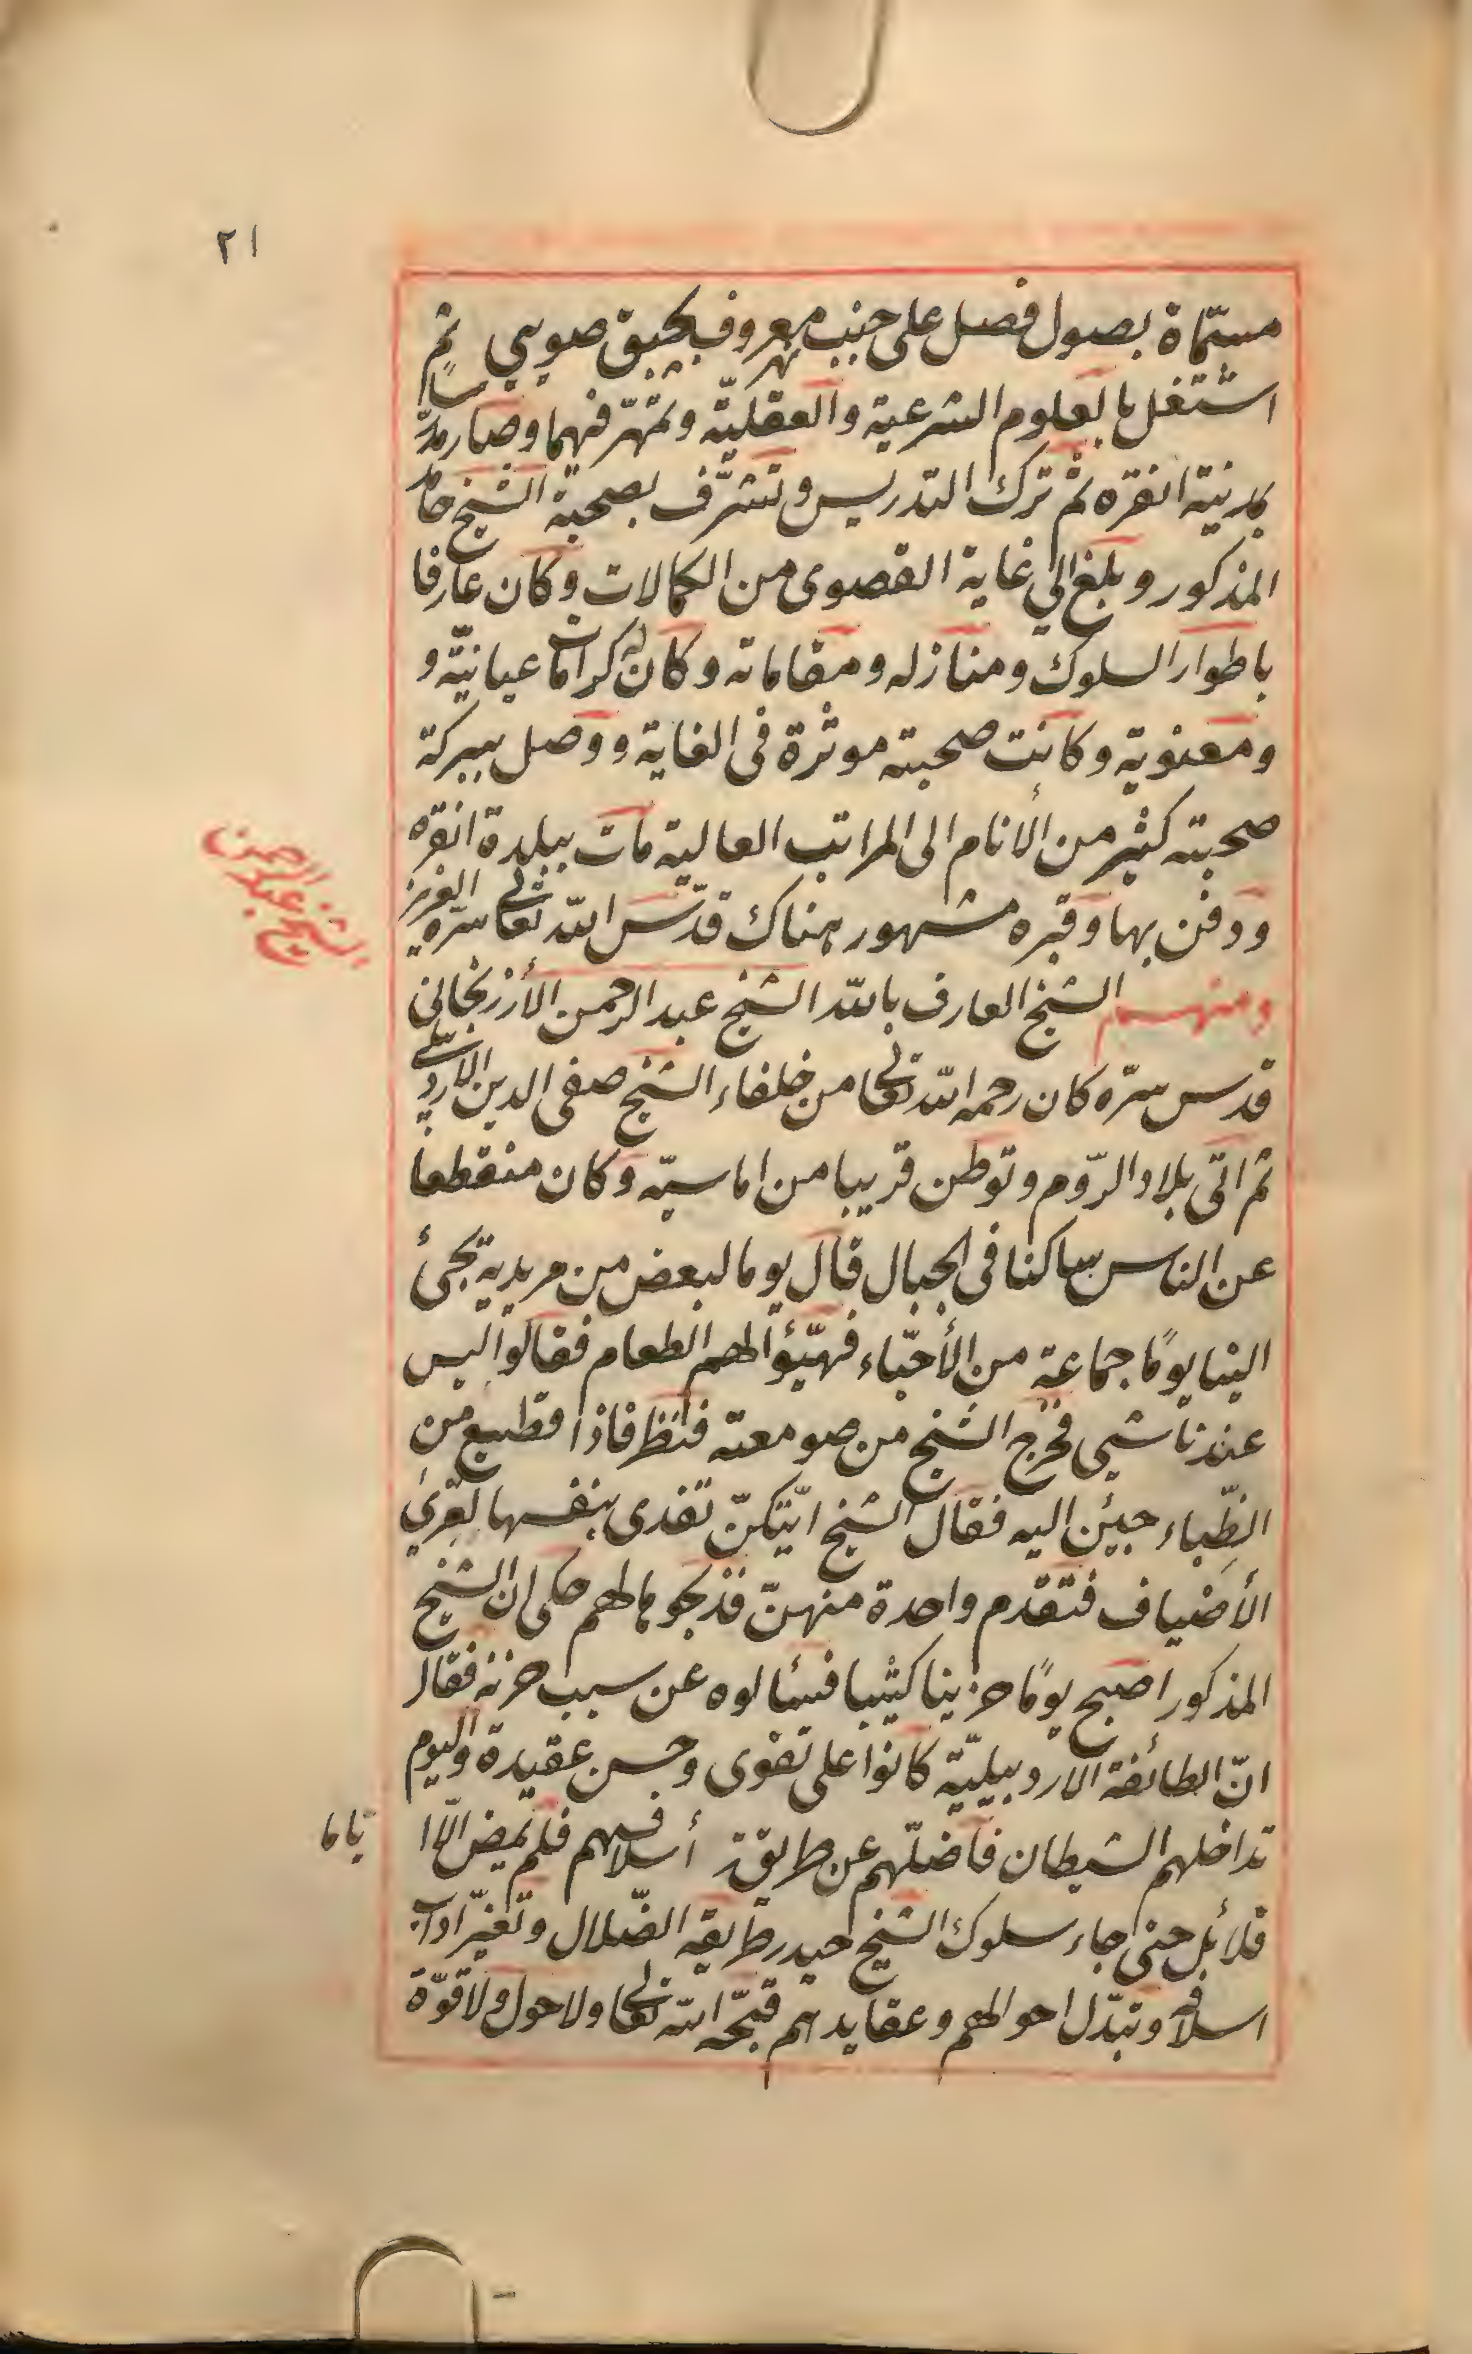 ٢١
مسمّاة بصول فصل على جنب نهر معروف بجبق صويى ثم
اشتغل بالعلوم الشرعية والعقليّة وتمهّر فيهما وصار مدرّسا
بمدينة انقره ثم ترك التدريس وتشرّف بصحبة الشيخ حامد
المذكور وبلغ الي غاية القصوى من الكمالات وكان عارفا
باطوار السلوك ومنازله ومقاماته وكان له كرامات عيانيّة و
ومعنوية وكانت صحبته موثرة فى الغاية ووصل ببركة
صحبته كثير من الأنام الى المراتب العالية مات ببلدة انقره
ودفن بها وقبره مشهور هناك قدّس الله تعالى سرّه العزيز
الشيخ عبد الرحمن
ومنهم الشيخ العارف بالله الشيخ عبد الرحمن الأرزنجاني
قدس سرّه كان رحمه الله تعالى من خلفاء الشيخ صفى الدين الاردبيلى
ثم اتى بلاد الرّوم وتوطن قريبا من اماسيّه وكان منقطعا
عن الناس ساكنا فى الجبال قال يوما لبعض من مريديه يجئ
الينا يومًا جماعة من الأحبّاء فهيّؤا لهم الطعام فقالوا ليس
عندنا شيى فخرج الشيخ من صومعته فنظر فاذا قطيع من
الظّباء جيئن اليه فقال الشيخ ايّتكنّ تفدى بنفسها لقرى
الأضياف فتقدم واحدة منهنّ فذبحوها لهم حكى ان الشيخ
المذكور اصبح يومًا حزينا كئيبا فسئالوه عن سبب حزنه فقال
انّ الطائفة الاردبيليّة كانوا على تقوى وحسن عقيدة واليوم
تداخلهم الشيطان فاضلّهم عن طريقة أسلافهم فلم يمض الّا ا
يّاما
قلائل حتى جاء سلوك الشيخ حيدر طريقه الضّلال وتغيّر اداب
اسلافه وتبدّل احوالهم وعقايدهم قبّحه الله تعالى ولا حول ولا قوّة